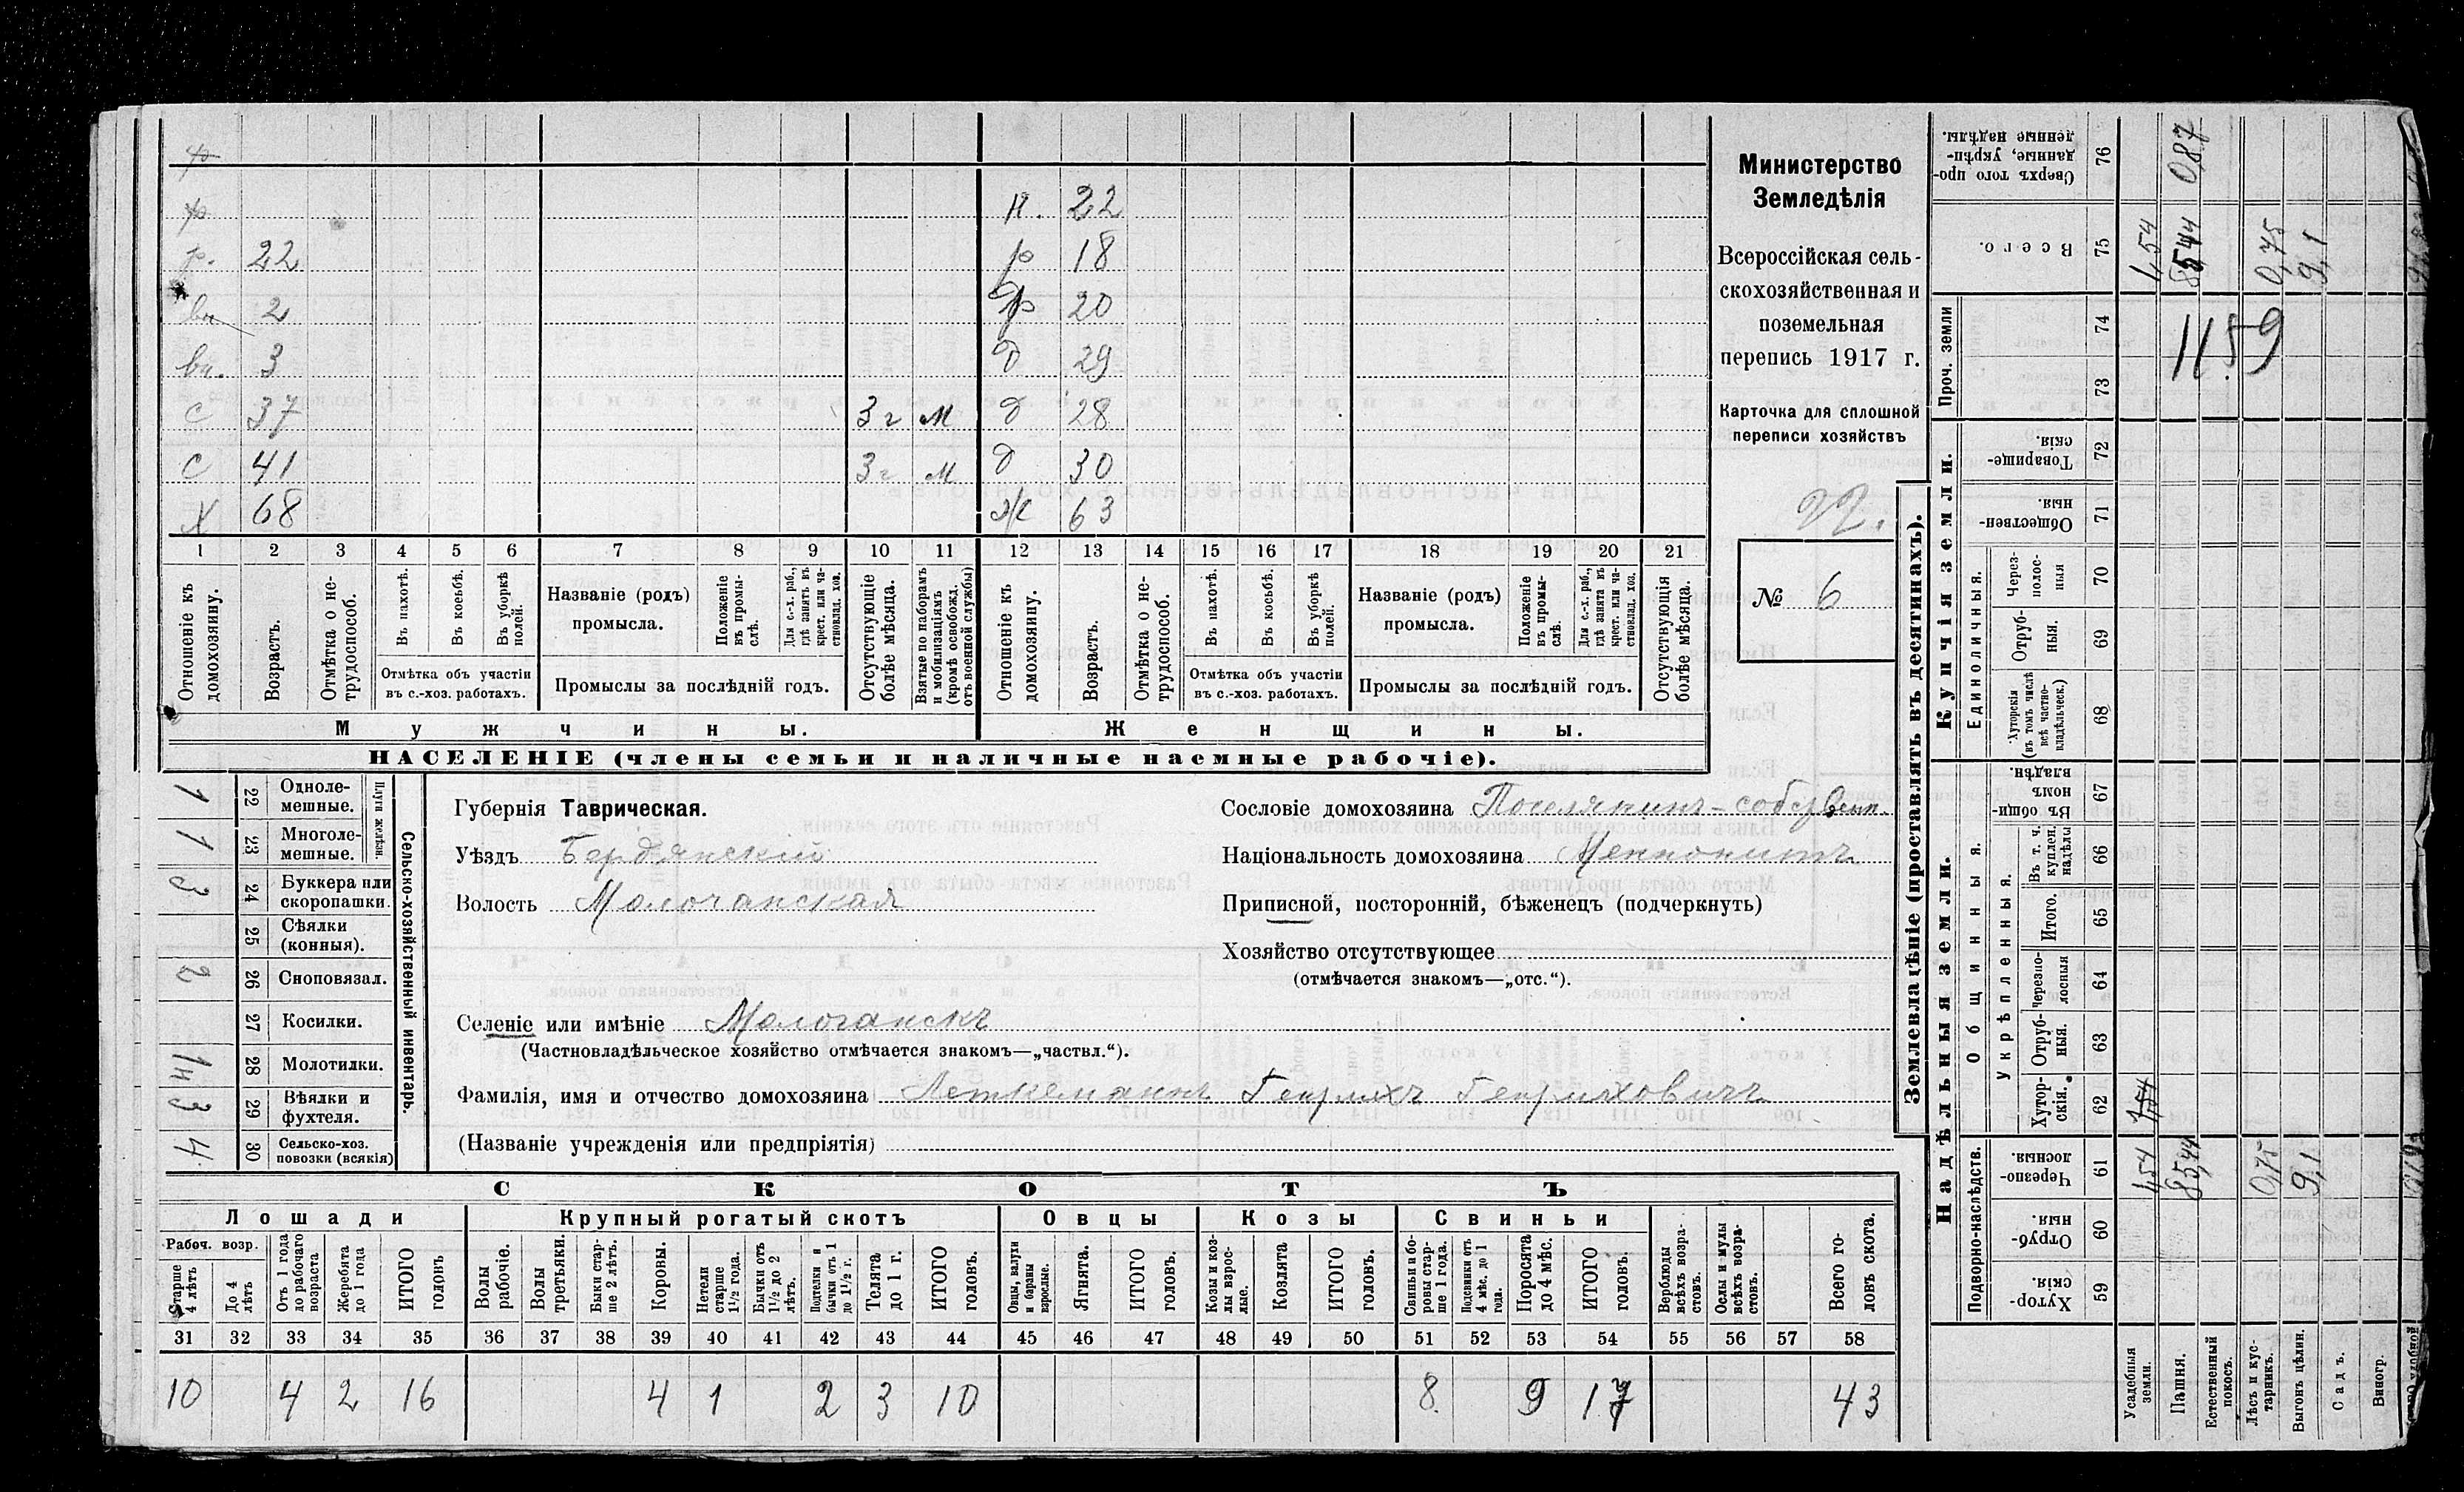 р
р 
н. 22
р. 22 р 18
вн 2 р 20
вн. 3 д 29
с 37 3 г м д 28
с 41 3 г м д 30
х 68 ж 63
1 2 3 4 5 6 7 8 9 10 11 12 13 14 15 16 17 18 19 20 21
Отношеніе къ домохозяину.
Возрастъ.
Отмѣтка о не-
трудоспособ.
Въ пахотѣ.
Въ косьбѣ.
Въ уборкѣ полей.
Отмѣтка объ участіи
въ с.-хоз. работахъ.
Названіе (родъ)
промысла.
Положеніе
въ промы-
слѣ.
Для с.-х. раб.,
гдѣ занятъ въ
крест. или ча-
стновлад. хоз.
Промыслы за послѣдній годъ.
Отсутствующіе
болѣе мѣсяца.
Взятые по наборамъ
и мобилизаціямъ
(кромѣ освобожд.
отъ военной службы)
Отношеніе къ
домохозяину.
Возрастъ.
Отмѣтка о не-
трудоспособ.
Въ пахотѣ.
Въ косьбѣ.
Въ уборкѣ
полей.
Отмѣтка объ участіи
въ с.-хоз. работахъ.
Названіе (родъ)
промысла.
Положеніе
въ промы-
слѣ.
Для с.-х. раб.,
гдѣ занята въ
крест. или ча-
стновлад. хоз.
Промыслы за послѣдній годъ.
Отсутствующія
болѣе мѣсяца.
Мужчины.
Женщины.
НАСЕЛЕНІЕ (члены семьи и наличные наемные рабочіе).
Министерство
Земледѣлія
Всероссійская сель-
скохозяйственная и
поземельная
перепись 1917 г.
Карточка для сплошной
переписи хозяйствъ
№ 6
Сельско-хозяйственный инвентарь.
Плуги желѣзн.
1 22 Одноле-
мешные.
1 23 Многоле-
мешные.
3 24 Буккера или
скоропашки.
25 Сѣялки
(конныя).
2 26 Сноповязал.
27 Косилки.
28 Молотилки.
3 29 Вѣялки и
фухтеля.
4 30 Сельско-хоз.
повозки (всякія)
Губернія Таврическая.
Уѣздъ Бердянскій
Волость Молочанская
Сословіе домохозяина Поселянинъ-собств
Національность домохозяина Меннонитъ
Приписной, посторонній, бѣженецъ (подчеркнуть)
Хозяйство отсутствующее
(отмѣчается знакомъ—„отс.“).
Селеніе или имѣніе Молочанскъ
(Частновладѣльческое хозяйство отмѣчается знакомъ—„частвл.“).
Фамилія, имя и отчество домохозяина Леткеманнъ Генрихъ Генриховичъ
(Названіе учрежденія или предпріятія)
СКОТЪ
Лошади
Крупный рогатый скотъ
Овцы
Козы
Свиньи
Рабоч. возр.
Старше
4 лѣтъ
До 4
лѣтъ
Отъ 1 года
до рабочаго
возраста
Жеребята
до 1 года
ИТОГО
головъ
Волы
рабочіе.
Волы
третьяки.
Быки стар-
ше 2 лѣтъ.
Коровы.
Нетели
старше
1½ года.
Бычки отъ
1½ до 2
лѣтъ.
Подтелки и
бычки отъ 1
до 1½ г.
Телята
до 1 г.
ИТОГО
головъ.
Овцы, валухи
и бараны
взрослые.
Ягнята.
ИТОГО
головъ.
Козы и коз-
лы взрос-
лые.
Козлята
ИТОГО
головъ.
Свиньи и бо-
ровы стар-
ше 1 года.
Подсвинки отъ
4 мѣс. до 1
года.
Поросята
до 4 мѣс.
ИТОГО
головъ.
Верблюды
всѣхъ возра-
стовъ.
Ослы и мулы
всѣхъ возра-
стовъ.
Всего го-
ловъ скота.
31 32 33 34 35 36 37 38 39 40 41 42 43 44 45 46 47 48 49 50 51 52 53 54 55 56 57 58
10 4 2 16 4 1 2 3 10 8 9 17 43
Землевладѣніе (проставлять въ десятинахъ).
Надѣльныя земли.
Купчія земли.
Проч. земли
Подворно-наслѣдств.
Общинныя.
Укрѣпленныя.
Единоличныя.
Сверхъ того про-
данные, укрѣп-
ленные надѣлы. 76 0,87
Всего. 75 1,54 85,44 0,75 9,1
74
73
1159
Товарище-
скія. 72
Обществен-
ныя. 71
Через-
полос-
ныя 70
Отруб-
ныя. 69
Хуторскія
(въ томъ числѣ
всѣ частно-
владѣльческ.) 68
Въ общи-
номъ
владѣн. 67
Въ т. ч.
куплен.
надѣлы 66
Итого. 65
Черезпо-
лосныя 64
Отруб-
ныя. 63
Хутор-
скія. 62 1,54
Черезпо-
лосныя. 61 1,54 85,44 0,75 9,1
Отруб-
ныя. 60
Хутор-
скія. 59
Усадебныя
земли.
Пашня.
Естественный
покосъ.
Лѣсъ и кус-
тарникъ.
Выгонъ цѣлин.
Садъ.
Виногр.